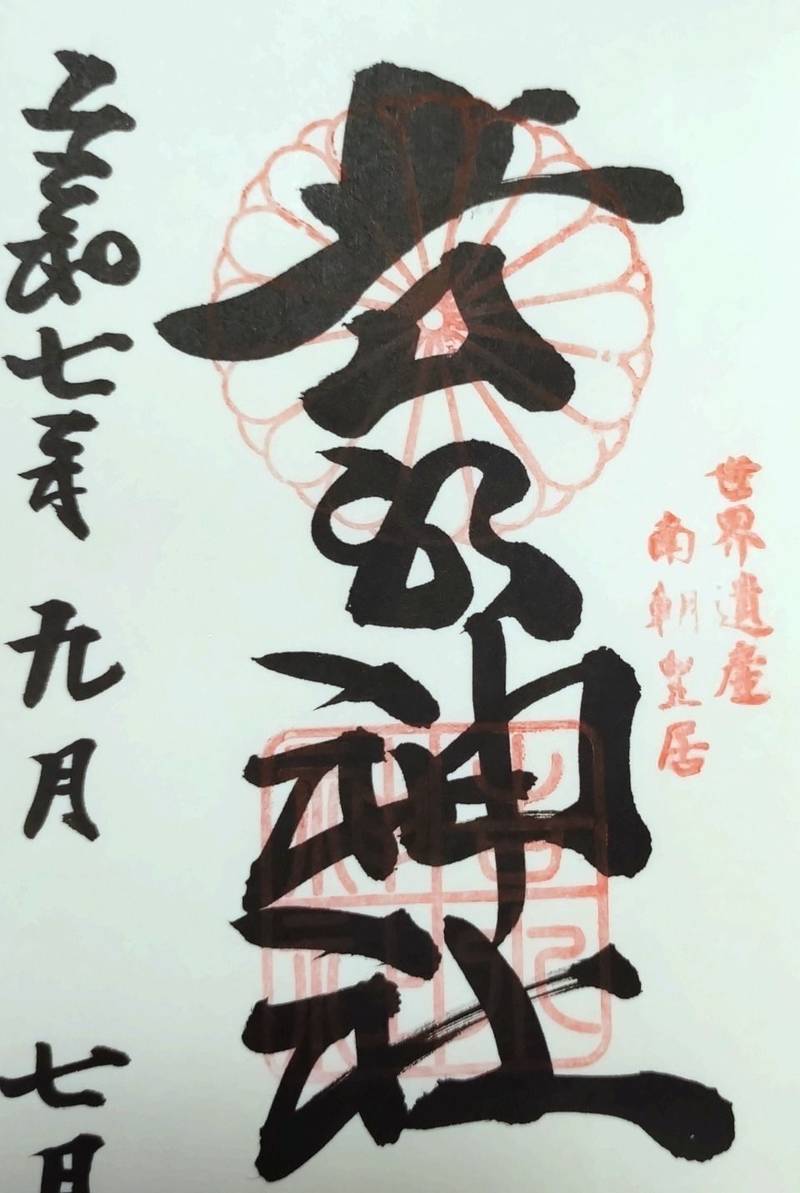 世界遺産
南朝皇居
吉水神社
令和七年九月七日